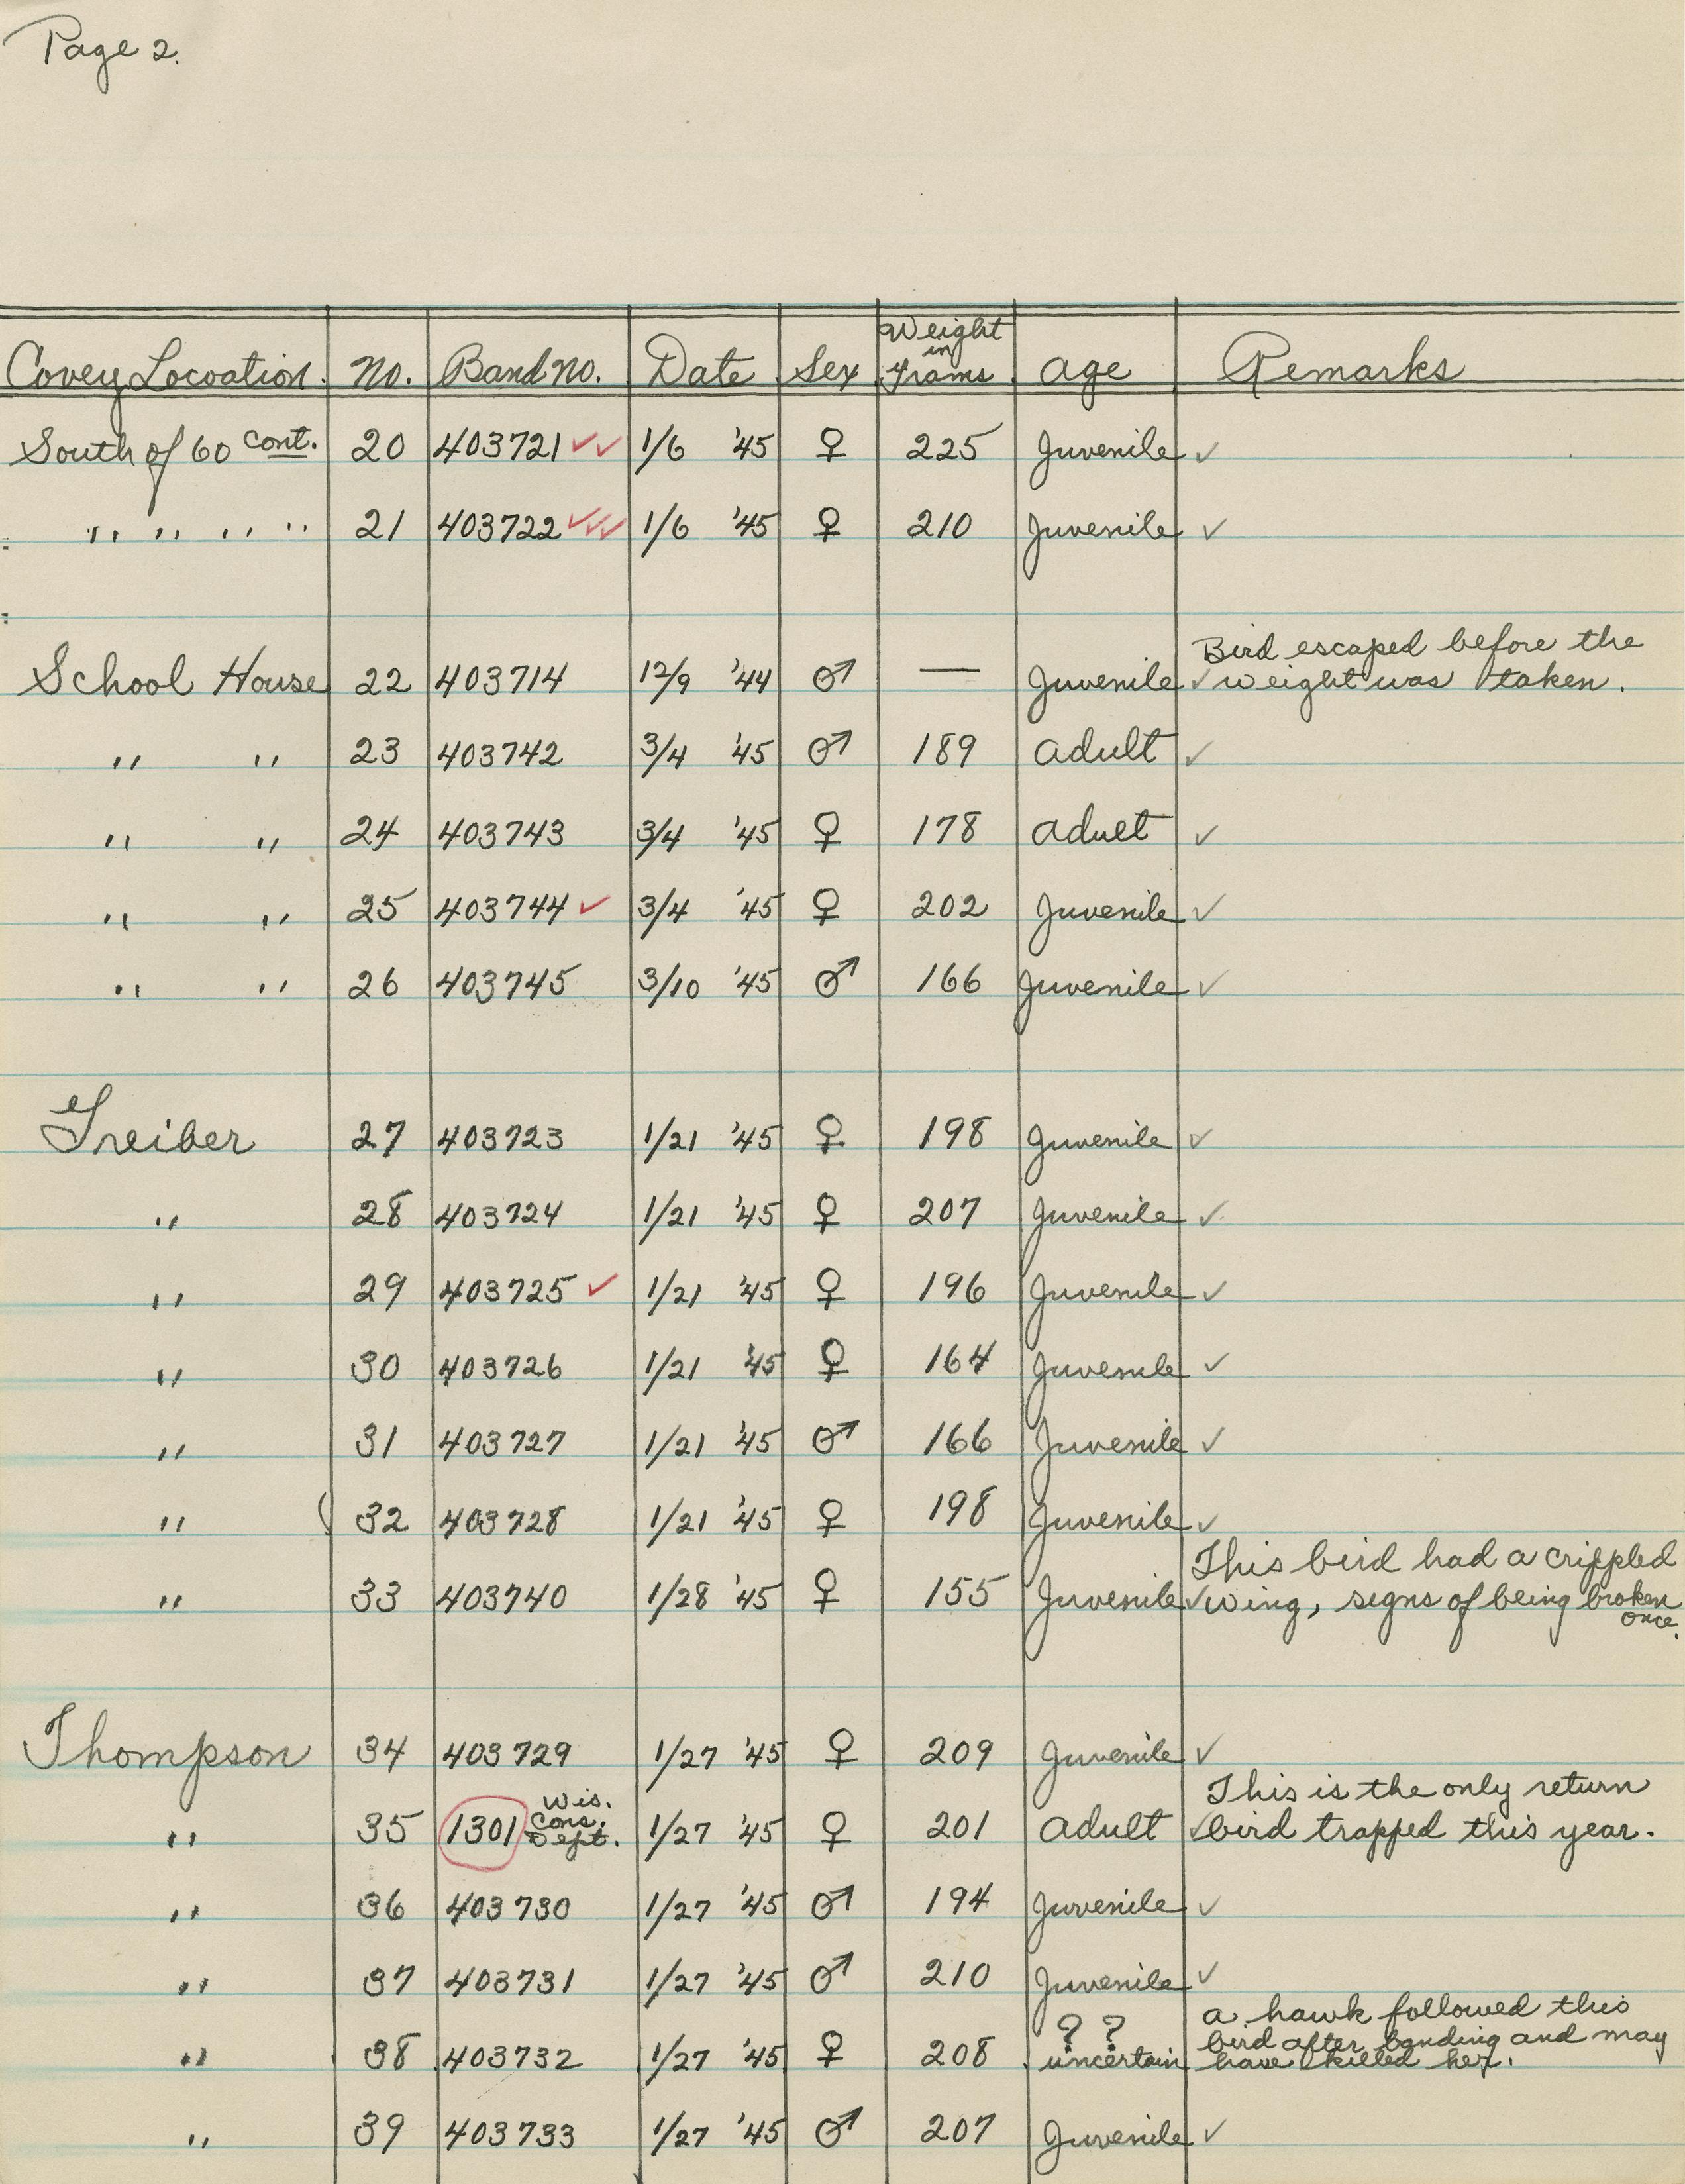 Page 2.
Covey Locoation. No. Band no. Date Sex Weight in grams Age Remarks
South of 60 cont. 20 403721 ✓✓ 1/6 '45 ♀ 225 Juvenile ✓
" " " " 21 403722 ✓✓✓ 1/6 '45 ♀ 210 Juvenile ✓
Bird escaped before the
School House 22 403714 12/9 '44 ♂ — Juvenile ✓ weight was taken.
" " 23 403742 3/4 '45 ♂ 189 Adult ✓
" " 24 403743 3/4 '45 ♀ 178 Adult ✓
" " 25 403744 ✓ 3/4 '45 ♀ 202 Juvenile ✓
" " 26 403745 3/10 '45 ♂ 166 Juvenile ✓
Treiber 27 403723 1/21 '45 ♀ 198 Juvenile ✓
" 28 403724 1/21 '45 ♀ 207 Juvenile ✓
" 29 403725 ✓ 1/21 '45 ♀ 196 Juvenile ✓
" 30 403726 1/21 '45 ♀ 164 Juvenile ✓
" 31 403727 1/21 '45 ♂ 166 Juvenile ✓
" ( 32 403728 1/21 '45 ♀ 198 Juvenile ✓
This bird had a crippled
" 33 403740 1/28 '45 ♀ 155 Juvenile ✓ wing, signs of being broken
once.
Thompson 34 403729 1/27 '45 ♀ 209 Juvenile ✓
This is the only return
" 35 1301 Wis. Cons. Dept. 1/27 '45 ♀ 201 Adult ✓ bird trapped this year.
" 36 403730 1/27 '45 ♂ 194 Juvenile ✓
" 37 403731 1/27 '45 ♂ 210 Juvenile ✓
? ? a hawk followed this
bird after banding and may
" 38 403732 1/27 '45 ♀ 208 uncertain have killed her.
" 39 403733 1/27 '45 ♂ 207 Juvenile ✓